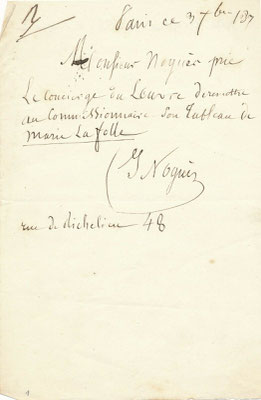 Paris ce 3 7bre 187
Monsieur Noguès prie
Le Concierge du Louvre de remettre
au Commissionnaire son Tableau de
Marie La folle
J Noguès
rue de Richelieu 48